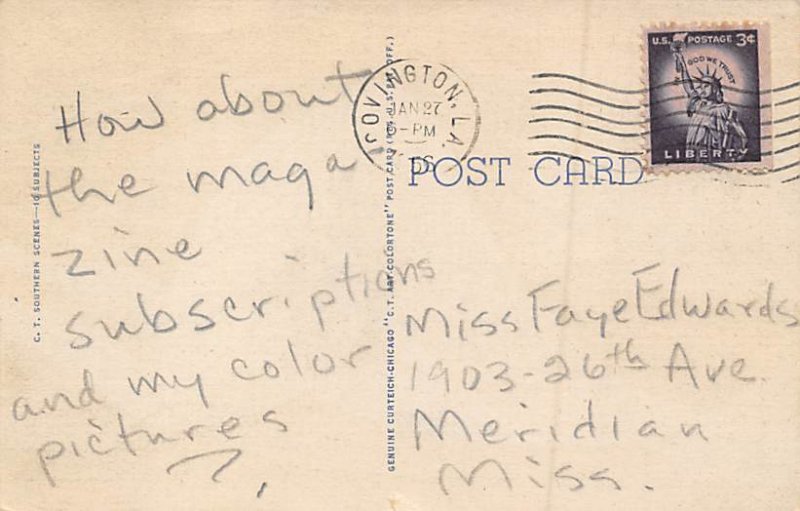 How about
the maga
zine
subscriptions
and my color
pictures
?
C. T. SOUTHERN SCENES—10 SUBJECTS
GENUINE CURTEICH-CHICAGO "C.T. ART-COLORTONE" POST CARD (REG. U.S. PAT. OFF.)
COVINGTON, LA.
JAN 27
PM
U.S. POSTAGE 3¢
IN GOD WE TRUST
LIBERTY
POST CARD
Miss Faye Edwards
1903-26th Ave.
Meridian
Miss.